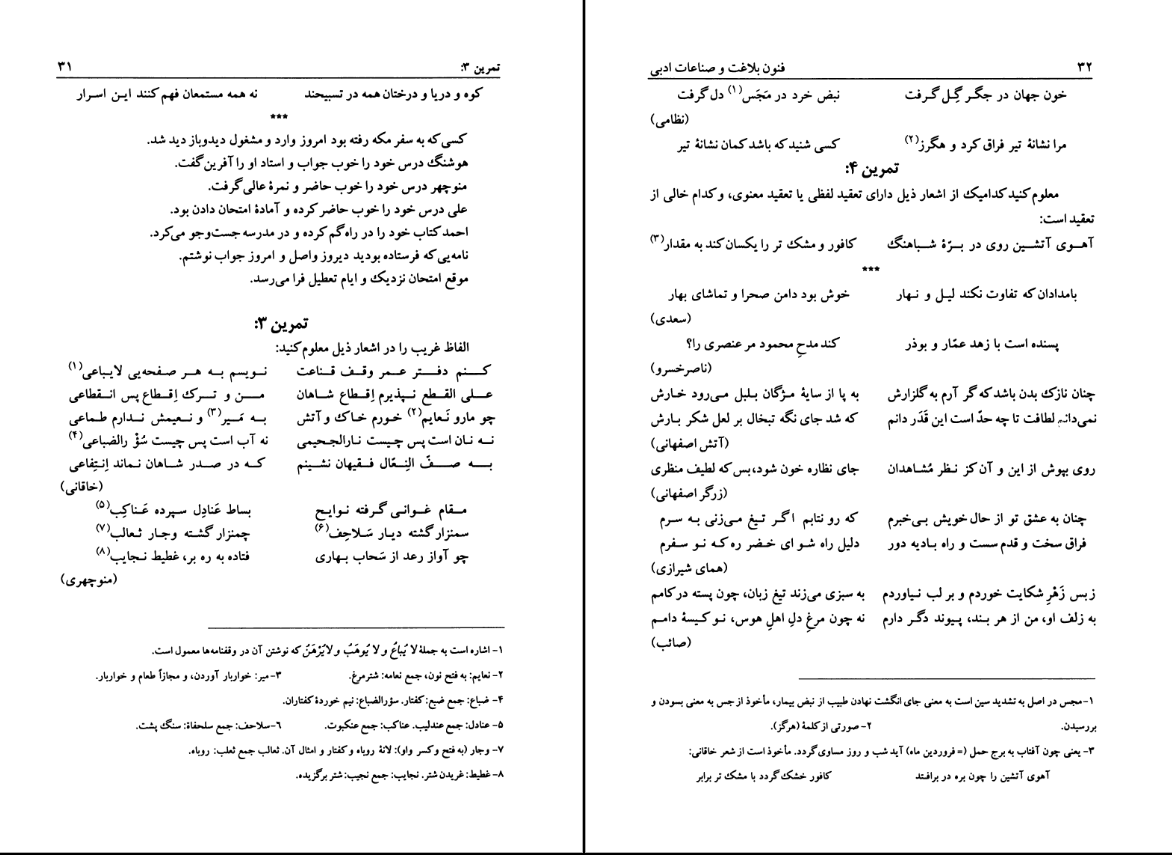 تمرین ۳: ۳۱
کوه و دریا و درختان همه در تسبیحند نه همه مستمعان فهم کنند این اسرار
***
کسی که به سفر مکه رفته بود امروز وارد و مشغول دیدوباز دید شد.
هوشنگ درس خود را خوب جواب و استاد او را آفرین گفت.
منوچهر درس خود را خوب حاضر و نمرهٔ عالی گرفت.
علی درس خود را خوب حاضر کرده و آمادهٔ امتحان دادن بود.
احمد کتاب خود را در راه گم کرده و در مدرسه جست‌وجو می‌کرد.
نامه‌یی که فرستاده بودید دیروز واصل و امروز جواب نوشتم.
موقع امتحان نزدیک و ایام تعطیل فرا می‌رسد.
تمرین ۳:
الفاظ غریب را در اشعار ذیل معلوم کنید:
کنم دفتر عمر وقف قناعت نویسم به هر صفحه‌یی لایباعی(۱)
علی القطع نپذیرم اِقطاع شاهان من و ترک اِقطاع پس انقطاعی
چو مارو نَعایم(۲) خورم خاک و آتش به مَیر(۳) و نعیمش ندارم طماعی
نه نان است پس چیست نارالجحیمی نه آب است پس چیست سُؤْر الضباعی(۴)
به صفّ النِعّال فقیهان نشینم که در صدر شاهان نماند اِنتِفاعی
(خاقانی)
مقام غوانی گرفته نوایح بساط عَنادِل سپرده عَناکِب(۵)
سمنزار گشته دیار سَلاحِف(۶) چمنزار گشته وجار ثعالب(۷)
چو آواز رعد از سَحاب بهاری فتاده به ره بر، غطیط نجایب(۸)
(منوچهری)
۱- اشاره است به جملهٔ لایُباعُ و لا یُوهَبُ و لایُرْهَنُ که نوشتن آن در وقفنامه‌ها معمول است.
۲- نعایم: به فتح نون، جمع نعامه: شترمرغ. ۳- میر: خواربار آوردن، و مجازاً طعام و خواربار.
۴- ضباع: جمع ضبع: کفتار. سؤرالضباع: نیم خوردهٔ کفتاران.
۵- عنادل: جمع عندلیب. عناکب: جمع عنکبوت. ۶- سلاحف: جمع سلحفاة: سنگ پشت.
۷- وجار (به فتح و کسر واو): لانهٔ روباه و کفتار و امثال آن. ثعالب جمع ثعلب: روباه.
۸- غطیط: غریدن شتر. نجایب: جمع نجیب: شتر برگزیده.
۳۲ فنون بلاغت و صناعات ادبی
خون جهان در جگر گِل گرفت نبض خرد در مَجَس(۱) دل گرفت
(نظامی)
مرا نشانهٔ تیر فراق کرد و هگرز(۲) کسی شنید که باشد کمان نشانهٔ تیر
تمرین ۴:
معلوم کنید کدامیک از اشعار ذیل دارای تعقید لفظی یا تعقید معنوی، و کدام خالی از
تعقید است:
آهوی آتشین روی در برّهٔ شباهنگ کافور و مشک تر را یکسان کند به مقدار(۳)
***
بامدادان که تفاوت نکند لیل و نهار خوش بود دامن صحرا و تماشای بهار
(سعدی)
پسنده است با زهد عمّار و بوذر کند مدحِ محمود مر عنصری را؟
(ناصرخسرو)
چنان نازک بدن باشد که گر آرم به گلزارش به پا از سایهٔ مژگان بلبل می‌رود خارش
نمی‌دانم لطافت تا چه حدّ است این قَدَر دانم که شد جای نگه تبخال بر لعل شکر بارش
(آتش اصفهانی)
روی بپوش از این و آن کز نظر مُشاهدان جای نظاره خون شود، بس که لطیف منظری
(زرگر اصفهانی)
چنان به عشق تو از حال خویش بی‌خبرم که رو نتابم اگر تیغ می‌زنی به سرم
فراق سخت و قدم سست و راه بادیه دور دلیل راه شو ای خضر ره که نو سفرم
(همای شیرازی)
ز بس زَهْرِ شکایت خوردم و بر لب نیاوردم به سبزی می‌زند تیغ زبان، چون پسته در کامم
به زلف او، من از هر بند، پیوند دگر دارم نه چون مرغِ دلِ اهلِ هوس، نو کیسهٔ دامم
(صائب)
۱- مجس در اصل به تشدید سین است به معنی جای انگشت نهادن طبیب از نبض بیمار، مأخوذ از جس به معنی بسودن و
بررسیدن. ۲- صورتی از کلمهٔ (هرگز).
۳- یعنی چون آفتاب به برج حمل (= فروردین ماه) آید شب و روز مساوی گردد. مأخوذ است از شعر خاقانی:
آهوی آتشین را چون بره در برافتد کافور خشک گردد با مشک تر برابر